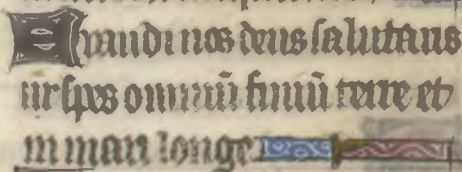 Exaudi nos deus salutaris
nr̄ spes omniū finiū terre et
in mari longe